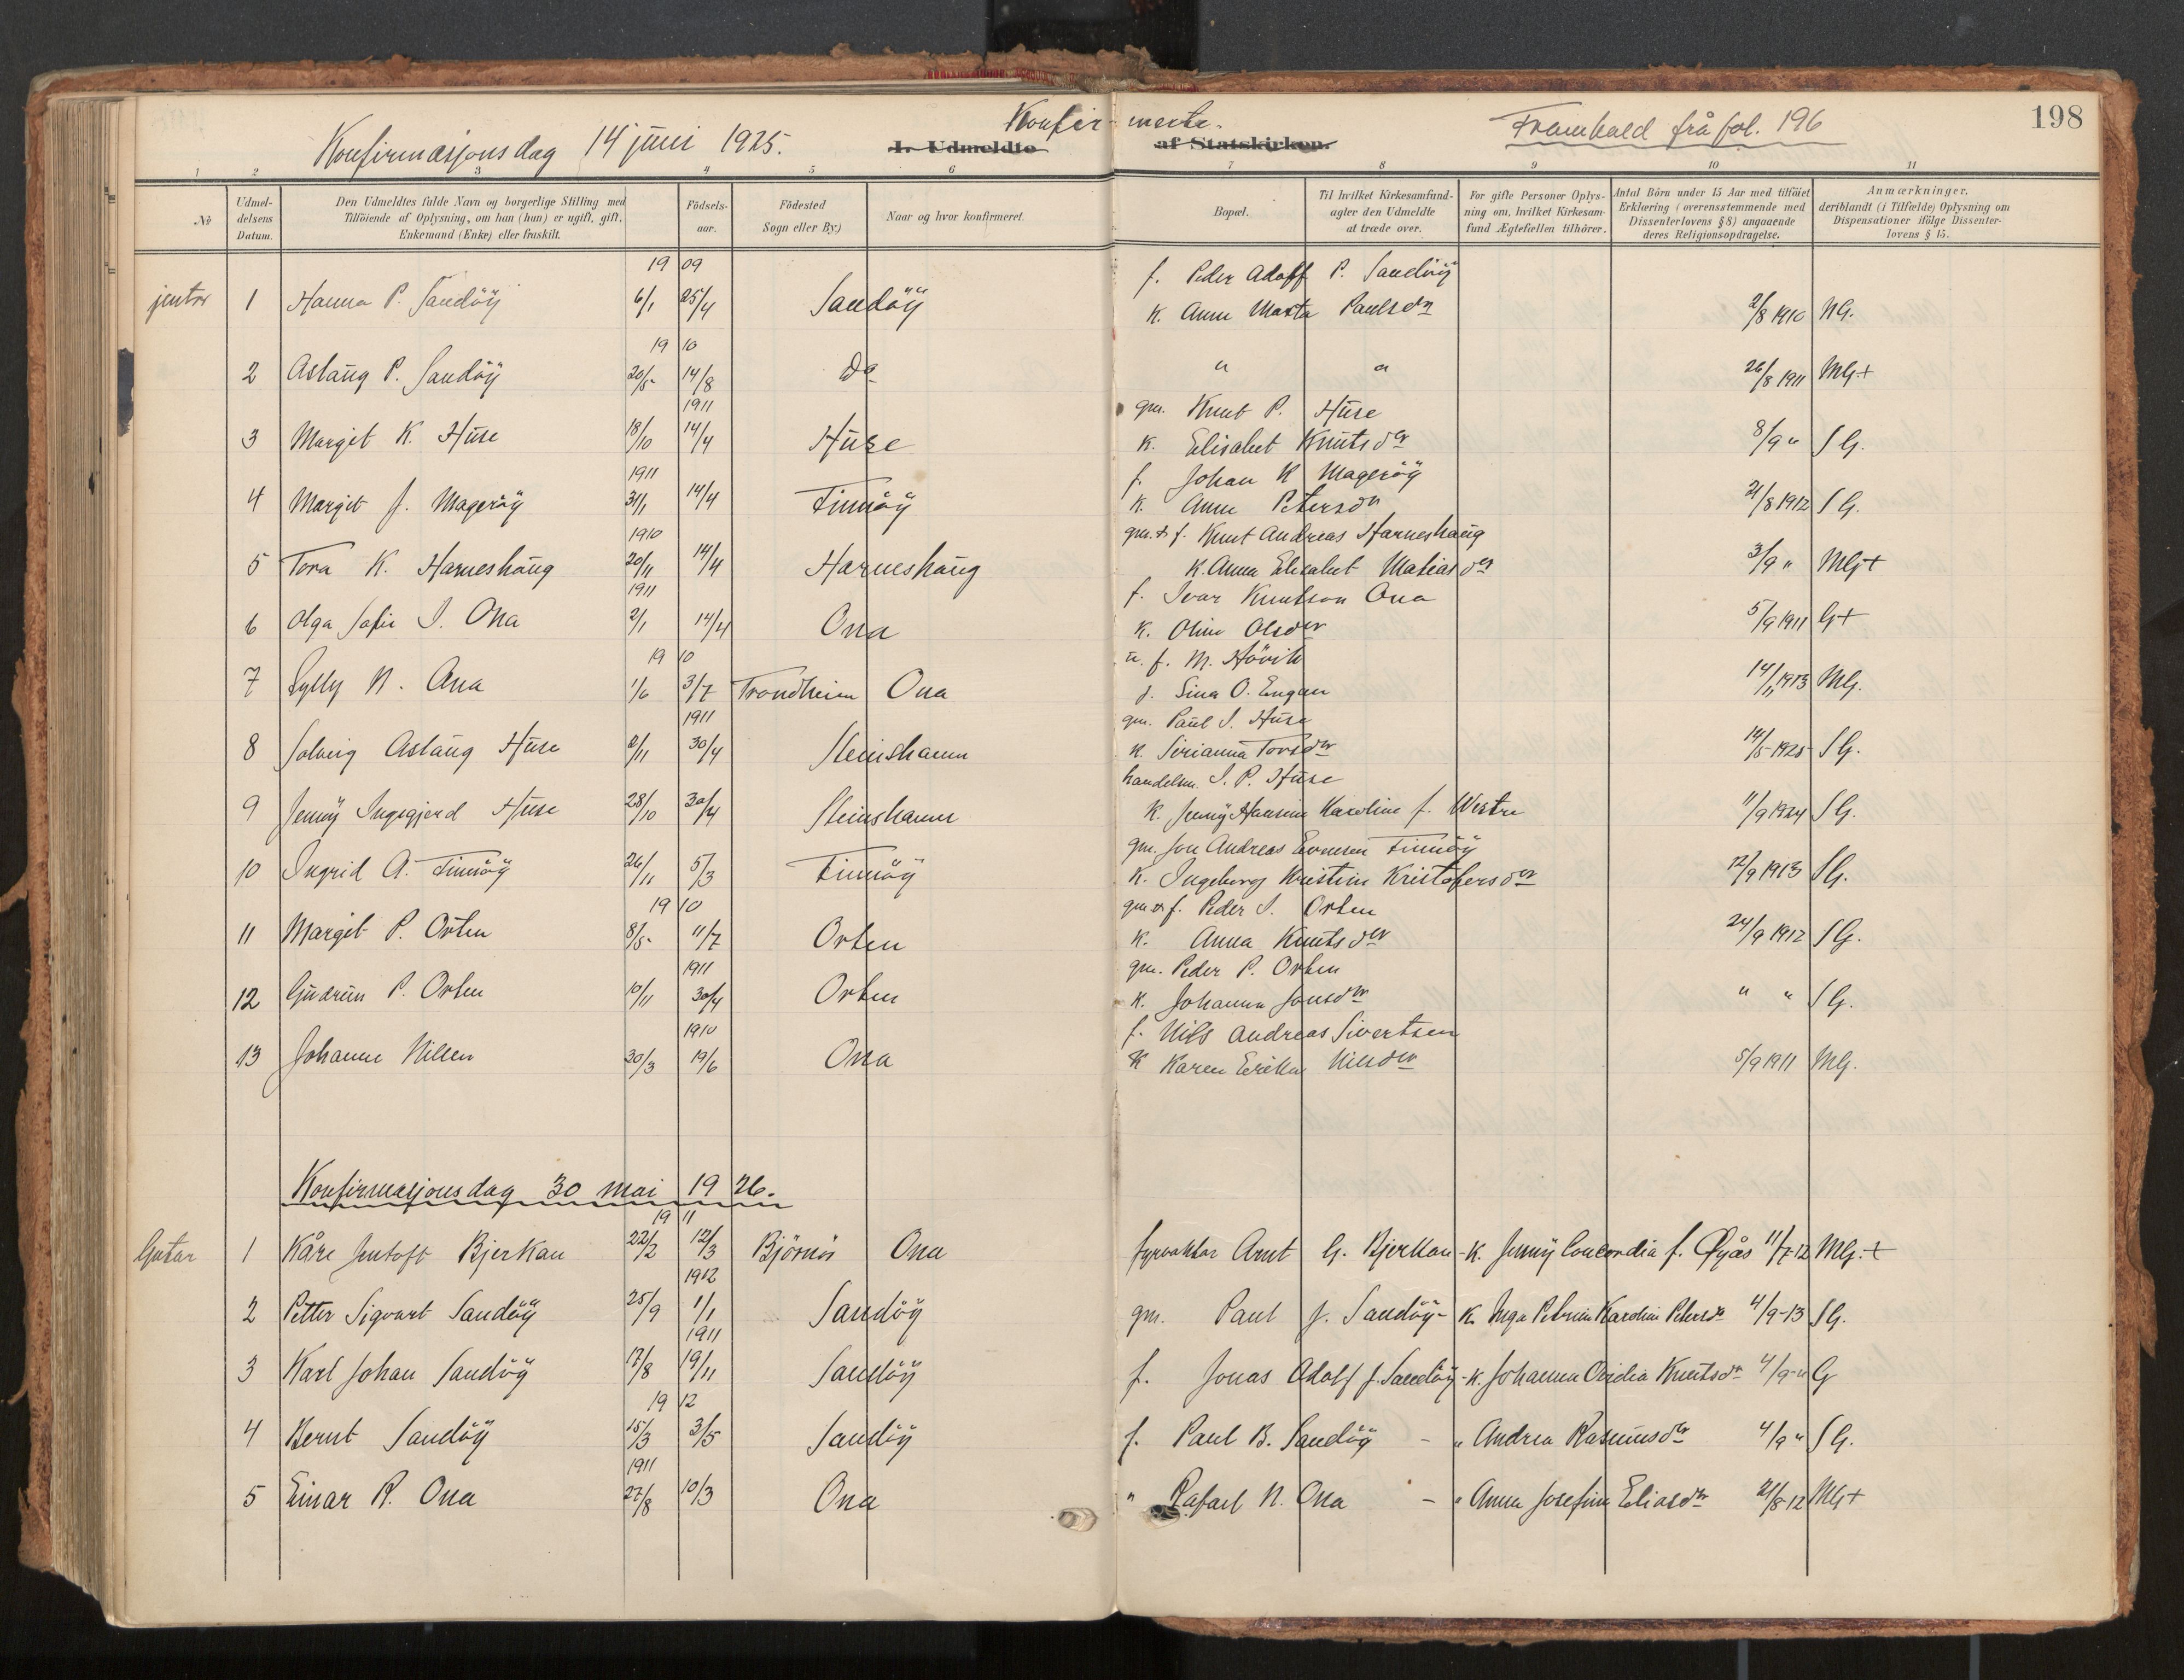 Konfirmasjonsdag 14 juni 1925. Konfirmerte. Framhald frå fol. 196 198
I. Udmeldte af Statskirken.
1 2 3 4 5 6 7 8 9 10 11
No
Udmeldelsens Datum.
Den Udmeldtes fulde Navn og borgerlige Stilling med Tilföiende af Oplysning, om han (hun) er ugift, gift, Enkemand (Enke) eller fraskilt.
Födselsaar.
Födested Sogn eller By.)
Naar og hvor konfirmeret.
Bopæl.
Til hvilket Kirkesamfund agter den Udmeldte at træde over.
For gifte Personer Oplysning om, hvilket Kirkesamfund Ægtefællen tilhörer.
Antal Börn under 15 Aar med tilföiet Erklæring (overensstemmende med Dissenterlovens § 8) angaaende deres Religionsopdragelse.
Anmærkninger, deriblandt (i Tilfælde) Oplysning om Dispensationer ifölge Dissenterlovens § 15.
19 09 f. Peder Adolf P. Sandöÿ
jenter 1 Hanna P. Sandöÿ 6/1 25/4 Sandöÿ K. Anne Marta Paulsdr 2/8 1910 NG.
19 10
2 Aslaug P. Sandöÿ 20/5 14/8 Do " " 26/8 1911 MG+
1911 gm. Knut P. Huse
3 Margit K. Huse 18/10 14/4 Huse K. Elisabet Knutsdr 8/9 " SG.
1911 f. Johan K Mageröÿ
4 Margit J. Mageröÿ 31/1 14/4 Finnöÿ K. Anne Petersdr 21/8 1912 SG.
1910 gm. & f. Knut Andreas Harneshaug
5 Tora K. Harneshaug 20/11 14/4 Harneshaug K. Anna Elisabet Matiasdr 3/9 " MG+
1911 f. Ivar Knutson Ona
6 Olga Sofie I. Ona 2/1 14/4 Ona K. Oline Olsdr 5/9 1911 G+
19 10 u. f. M. Hövik
7 Sylly N. Ona 1/6 3/7 Trondheim Ona p. Sina O. Engan 14/11 1913 MG.
1911 gm. Paul I. Huse
8 Solveig Aslaug Huse 2/11 30/4 Steinshamn K. Sirianna Torsdr 14/5-1925 SG.
handelsm. I. P. Huse
9 Jenny Ingegjerd Huse 28/10 30/4 Steinshamn K. Jenny Hansine Karoline f. Westre 11/9 1924 SG.
gm. Jon Andreas Evensen Finnöÿ
10 Ingrid A. Finnöÿ 26/11 5/3 Finnöÿ K. Ingeborg Kristine Kristofersdr 12/9 1913 SG.
19 10 gm. & f. Peder I. Orten
11 Margit P. Orten 8/5- 11/7 Orten K. Anna Knutsdr 24/9 1912 SG.
1911 gm. Peder P. Orten
12 Gudrun P. Orten 10/11 30/4 Orten K. Johanna Jonsdr " " SG.
1910 f. Nils Andreas Sivertsen
13 Johanne Nilsen 30/3 19/6 Ona K Karen Erikke Nilsdr 5/9 1911 MG.
Konfirmasjonsdag 30 mai 19 26.
19 11
Gutar 1 Kåre Jentoft Bjerkan 22/2 12/3 Björnör Ona fyrvaktar Arnt G. Bjerkan - K. Jenny Concordia f. Øyås 11/7-12 MG.+
1912
2 Petter Sigvart Sandöÿ 25/9 1/1 Sandöÿ gm. Paul J. Sandöÿ - K. Inga Petrine Karoline Petersdr 4/9-13 SG.
1911
3 Karl Johan Sandöÿ 17/8 19/11 Sandöÿ f. Jonas Adolf J. Sandöÿ - K. Johanna Ovidia Knutsdr 4/9-" G
19 12
4 Bernt Sandöÿ 15/3 3/5 Sandöÿ f. Paul B. Sandöÿ - " Andrea Rasmusdr 4/9 " SG.
1911
5 Einar R. Ona 27/8 10/3 Ona " Rafael N. Ona - " Anna Josefine Eliasdr 21/8-12 MG+